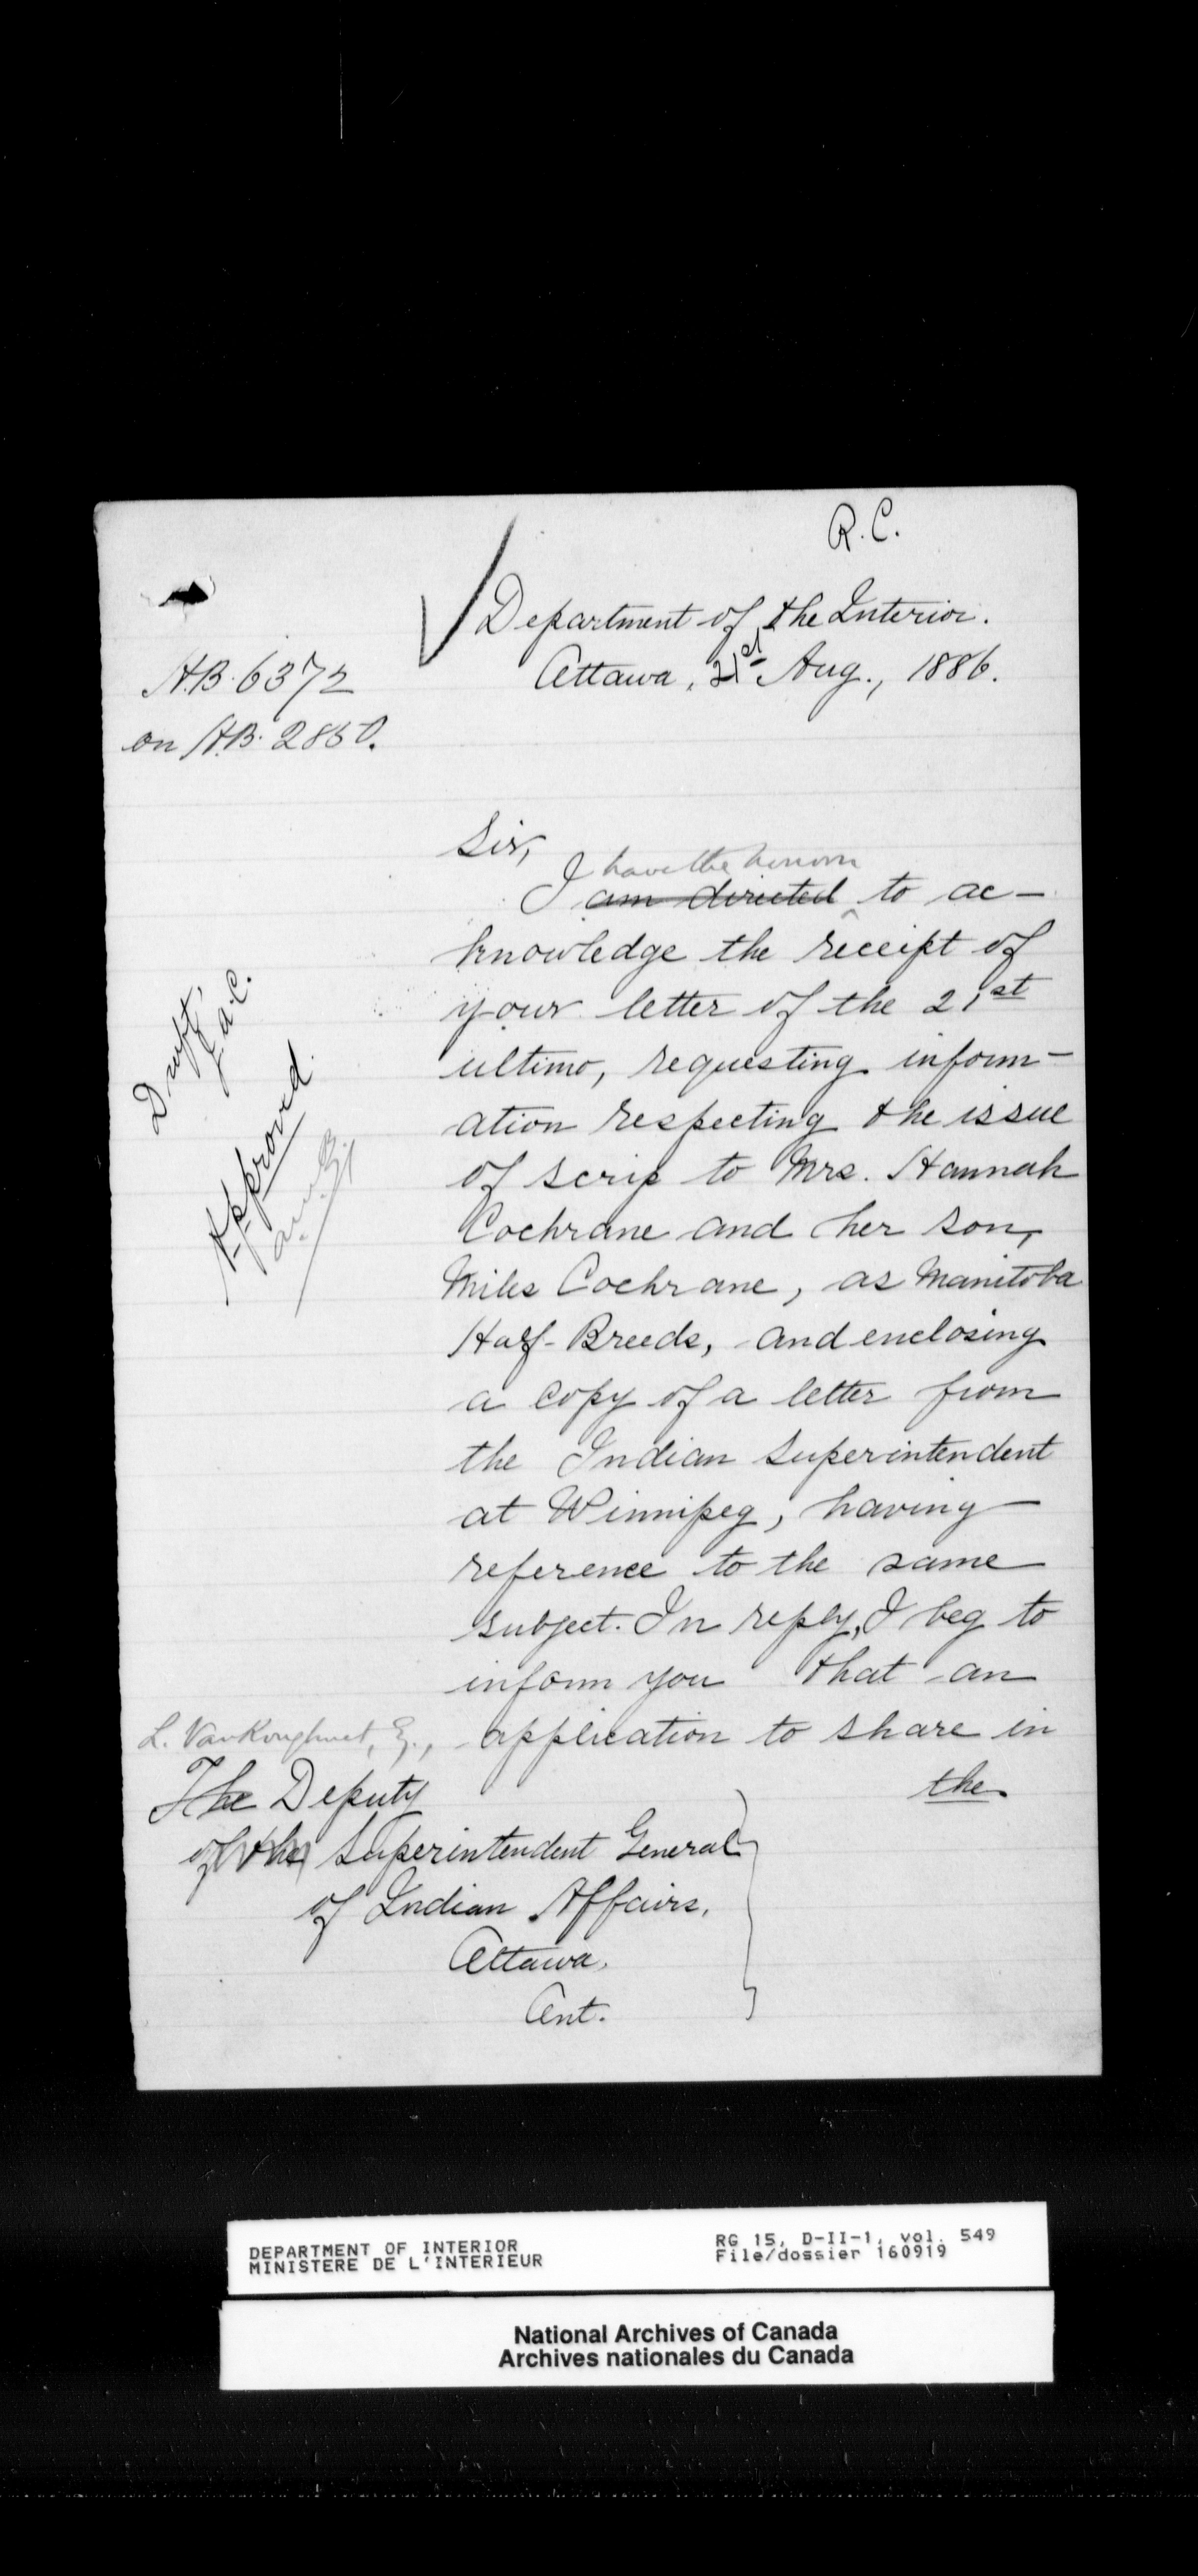 R. C.
Department of the Interior.
Ottawa, 21st Aug., 1886.
H.B. 6372
on H.B. 2850.
Sir,
have the honour
I am directed to ac-
knowledge the receipt of
your letter of the 21st
ultimo, requesting inform-
ation respecting the issue
of scrip to Mrs. Hannah
Cochrane and her son,
Miles Cochrane, as Manitoba
Half-Breeds, and enclosing
a copy of a letter from
the Indian Superintendent
at Winnipeg, having
reference to the same
subject. In reply, I beg to
inform you that an
application to share in
the
Draft,
J.A.C.
Approved
L. VanKoughnet, Esq.,
The Deputy
of the Superintendent General
of Indian Affairs,
Ottawa,
Ont.
DEPARTMENT OF INTERIOR
MINISTERE DE L'INTERIEUR
RG 15, D-II-1, vol. 549
File/dossier 160919
National Archives of Canada
Archives nationales du Canada